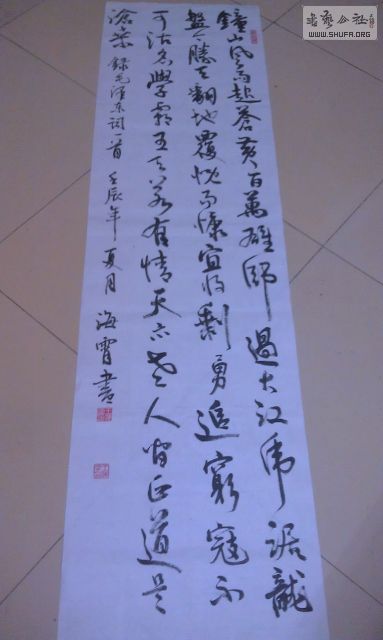 書藝公社
WWW.SHUFA.ORG
鐘山風雨起蒼黃百萬雄師過大江虎踞龍
盤今勝天翻地覆慨而慷宜将剩勇追窮寇不
可沽名學霸王天若有情天亦老人間正道是
滄桑 錄毛澤東詞一首 壬辰年夏月 海霄書